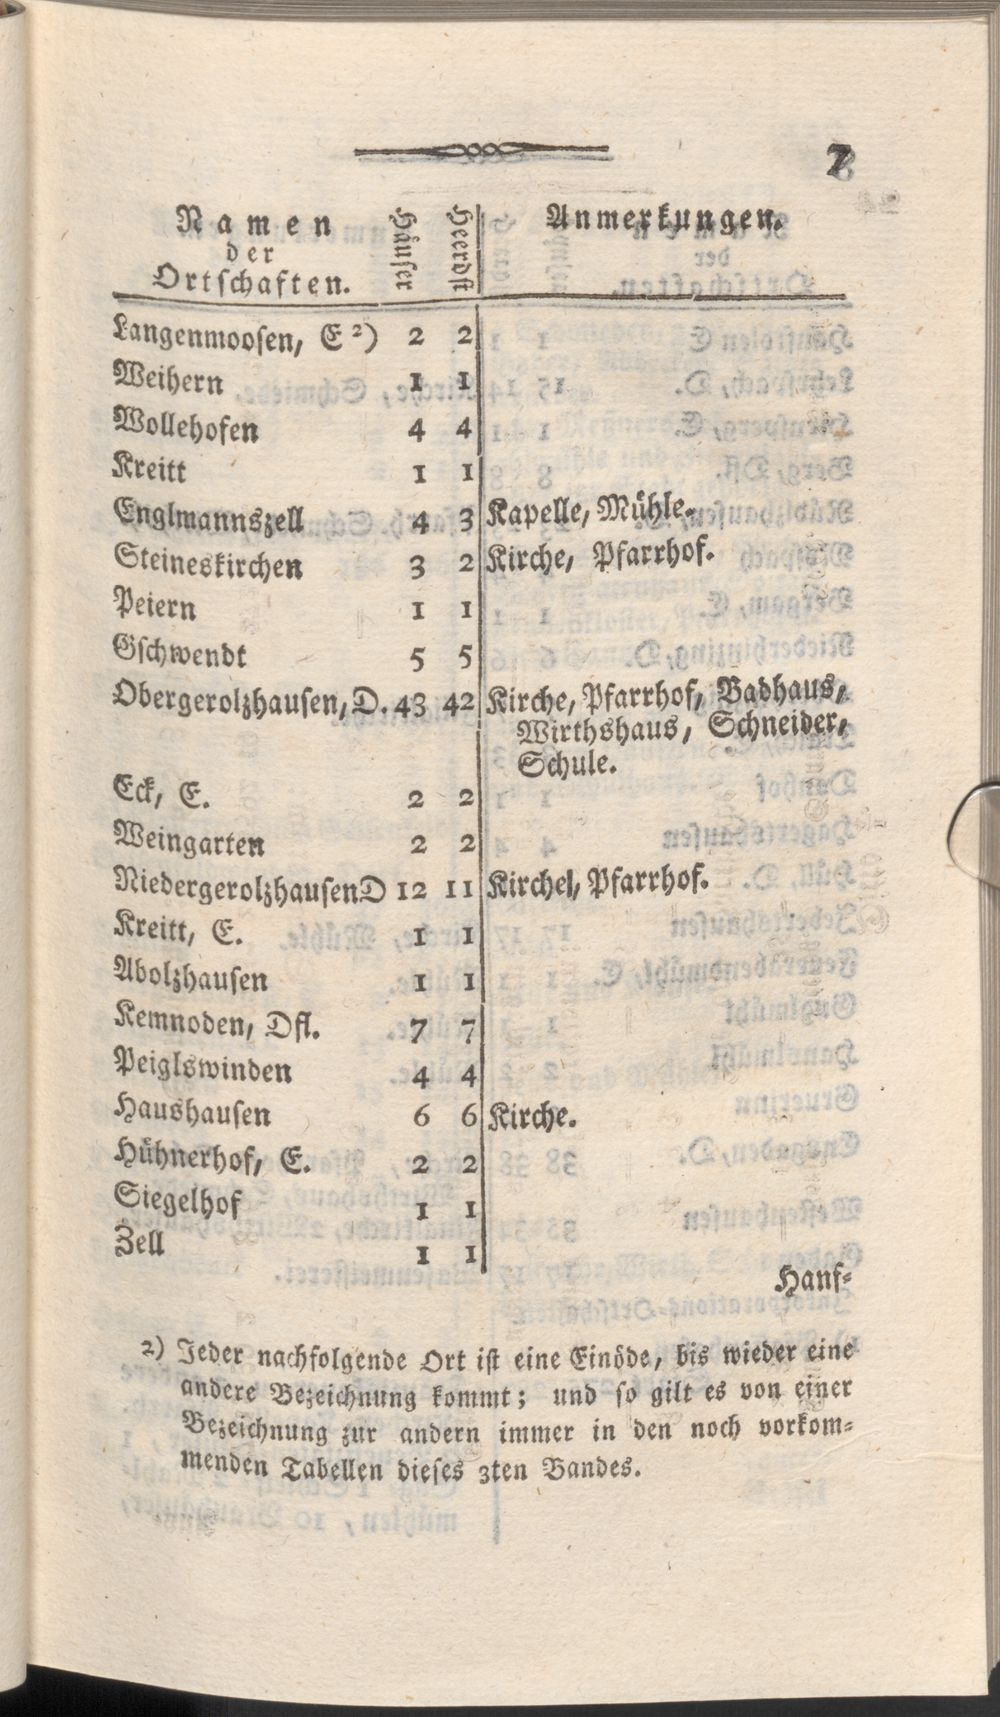 7
Namen Häuser Heerdst Anmerkungen.
der
Ortschaften.
Langenmoosen, E 2) 2 2
Weihern 1 1
Wollehofen 4 4
Kreitt 1 1
Englmannszell 4 3 Kapelle, Mühle.
Steineskirchen 3 2 Kirche, Pfarrhof.
Peiern 1 1
Gschwendt 5 5
Obergerolzhausen, D. 43 42 Kirche, Pfarrhof, Badhaus,
Wirthshaus, Schneider,
Schule.
Eck, E. 2 2
Weingarten 2 2
Niedergerolzhausen D 12 11 Kirche, Pfarrhof.
Kreitt, E. 1 1
Abolzhausen 1 1
Kemnoden, Dfl. 7 7
Peiglswinden 4 4
Haushausen 6 6 Kirche.
Hühnerhof, E. 2 2
Siegelhof 1 1
Zell 1 1
Hanf-
2) Jeder nachfolgende Ort ist eine Einöde, bis wieder eine
andere Bezeichnung kommt; und so gilt es von einer
Bezeichnung zur andern immer in den noch vorkom-
menden Tabellen dieses 3ten Bandes.